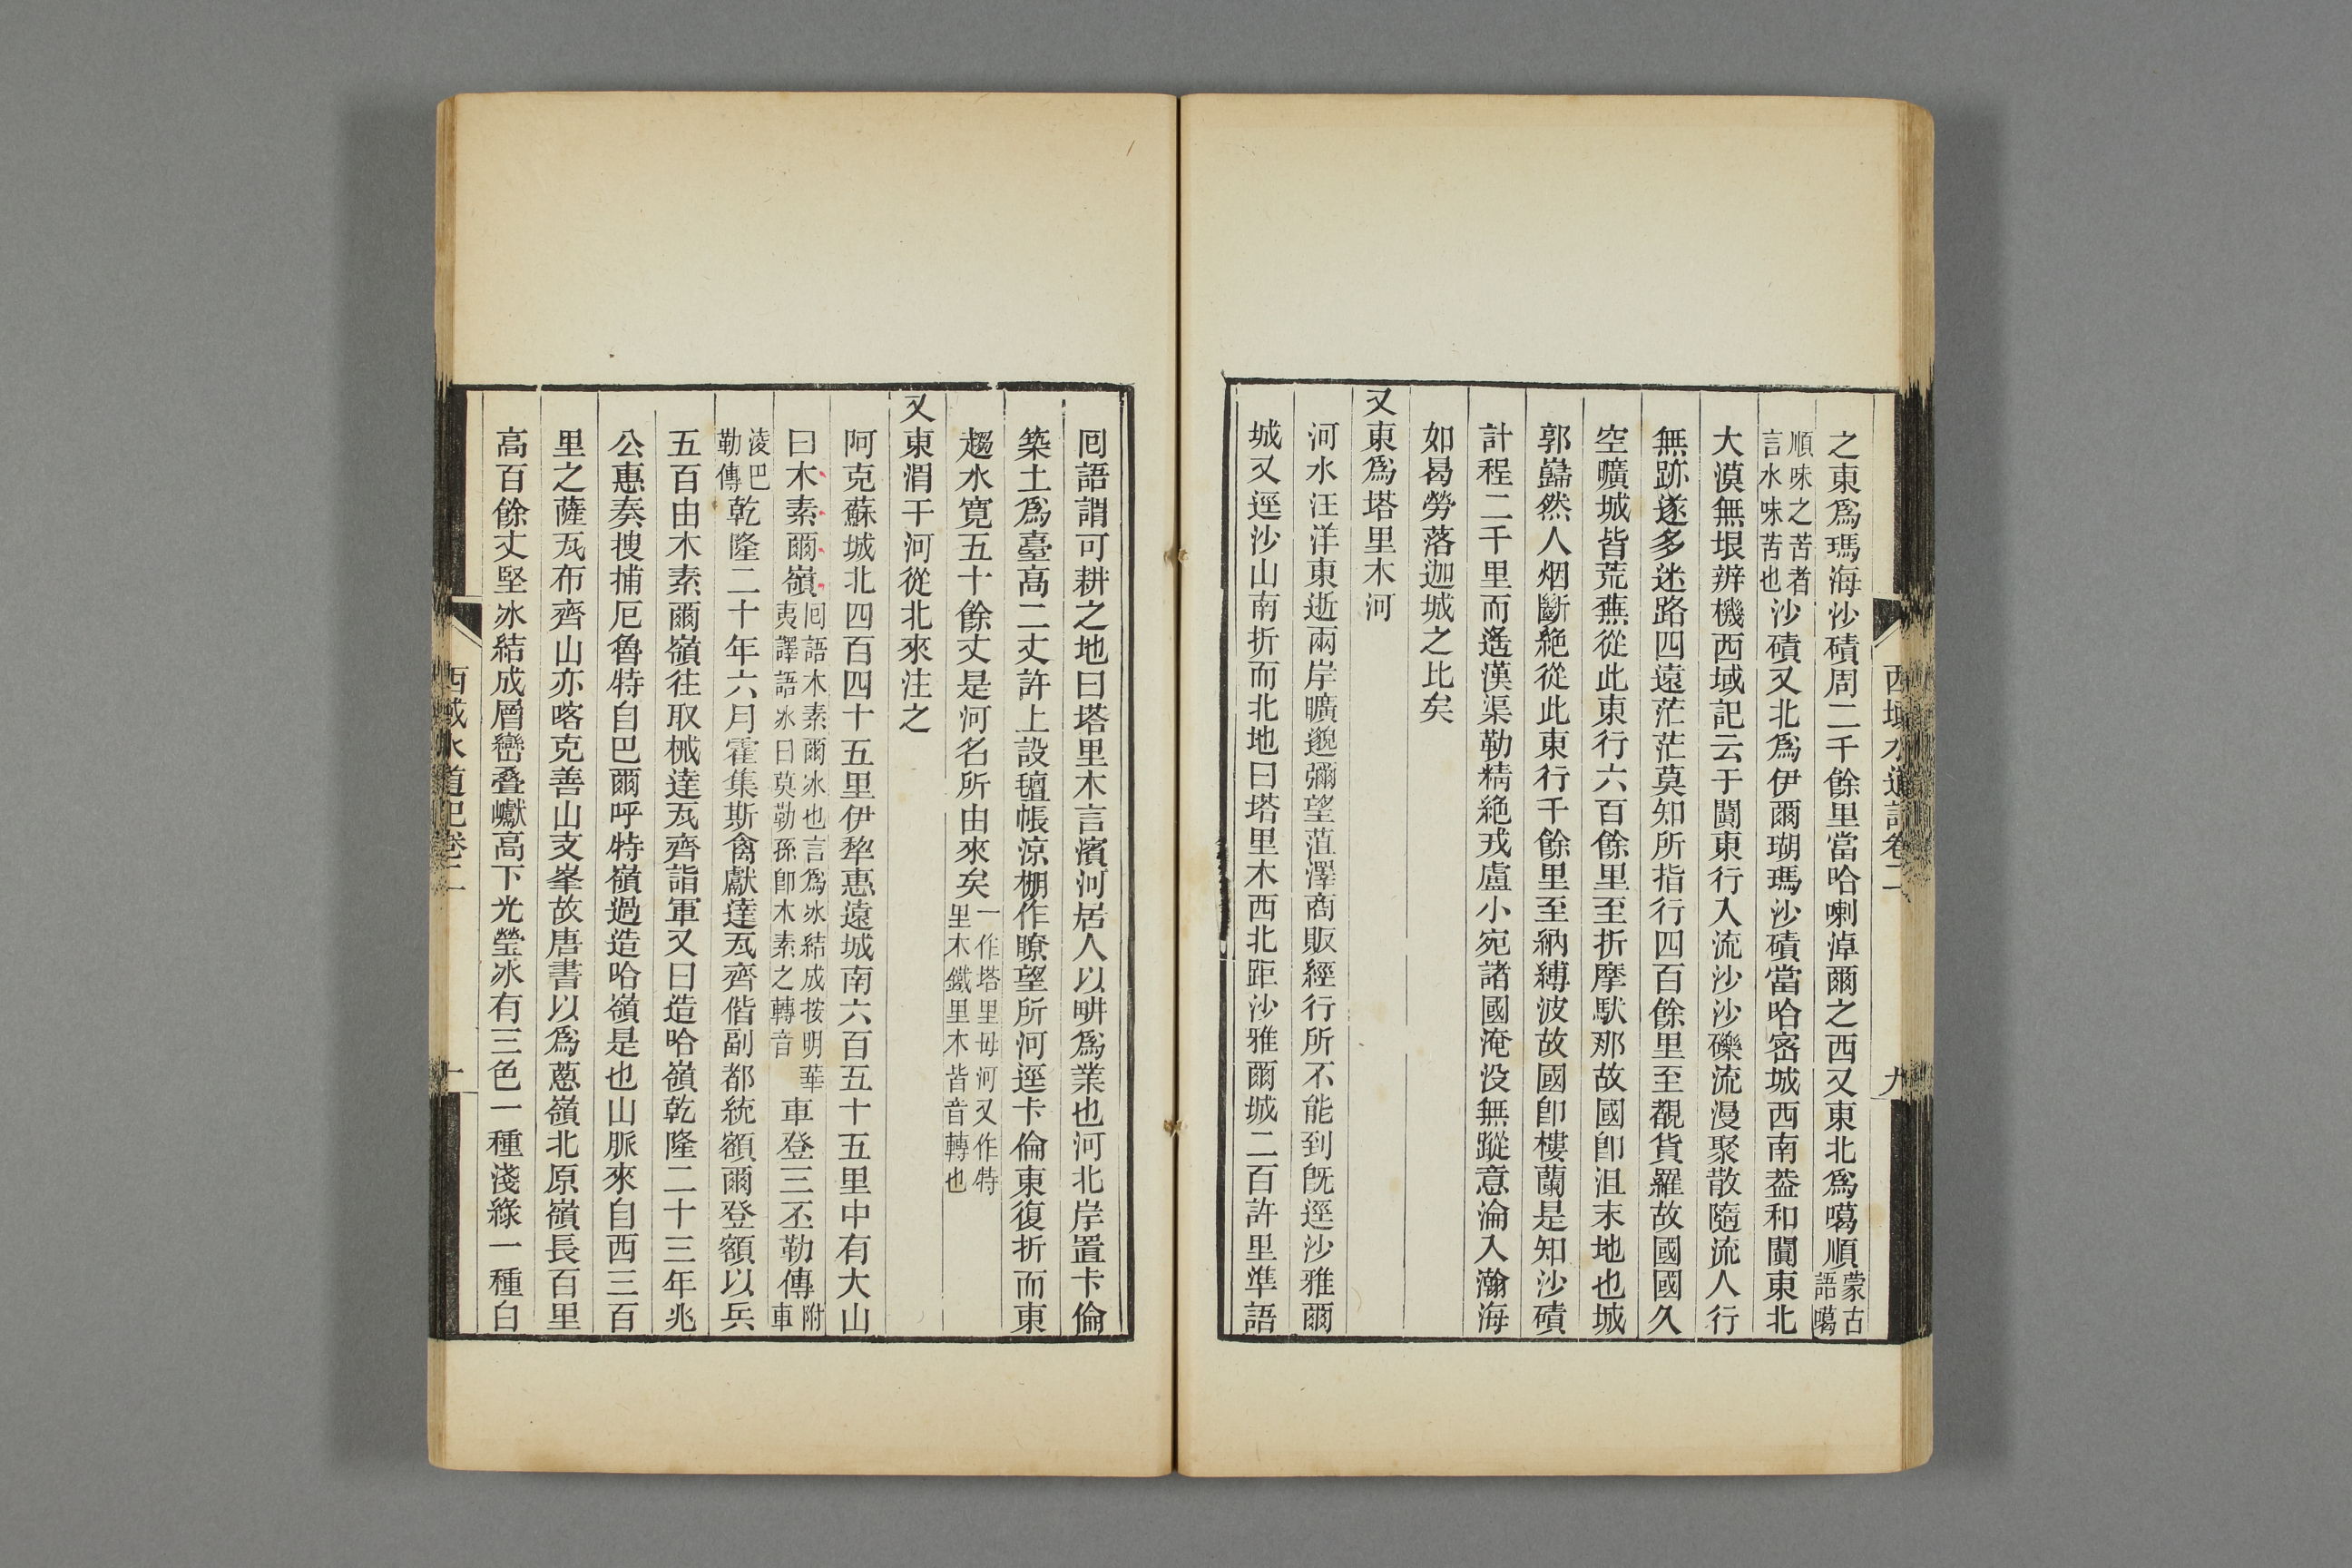 之東爲瑪海沙磧周二千餘里當哈喇淖爾之西又東北爲噶順蒙古語噶
順味之苦者言水味苦也沙磧又北爲伊爾瑚瑪沙磧當哈密城西南葢和闐東北
大漠無垠辨機西域記云于闐東行入流沙沙礫流漫聚散隨流人行
無跡遂多迷路四遠茫茫莫知所指行四百餘里至覩貨羅故國國久
空曠城皆荒蕪從此東行六百餘里至折摩馱那故國卽沮末地也城
郭巋然人烟斷絶從此東行千餘里至納縛波故國卽樓蘭是知沙磧
計程二千里而遙漢渠勒精絶戎盧小宛諸國淹没無蹤意淪入瀚海
如曷勞落迦城之比矣
又東爲塔里木河
河水汪洋東逝兩岸曠邈彌望菹澤商販經行所不能到旣逕沙雅爾
城又逕沙山南折而北地曰塔里木西北距沙雅爾城二百許里準語
西域水道記卷二
九
囘語謂可耕之地曰塔里木言濱河居人以畊爲業也河北岸置卡倫
築土爲臺高二丈許上設氊帳涼棚作瞭望所河逕卡倫東復折而東
趨水寬五十餘丈是河名所由來矣一作塔里母河又作特里木鐵里木皆音轉也
又東渭干河從北來注之
阿克蘇城北四百四十五里伊犂惠遠城南六百五十五里中有大山
曰木素爾嶺囘語木素爾冰也言爲冰結成按明華夷譯語冰曰莫勒孫卽木素之轉音車登三丕勒傳附車
淩巴勒傳乾隆二十年六月霍集斯禽獻達瓦齊偕副都統額爾登額以兵
五百由木素爾嶺往取械達瓦齊詣軍又曰造哈嶺乾隆二十三年兆
公惠奏搜捕厄魯特自巴爾呼特嶺過造哈嶺是也山脈來自西三百
里之薩瓦布齊山亦喀克善山支峯故唐書以爲蔥嶺北原嶺長百里
高百餘丈堅冰結成層巒叠巘高下光瑩冰有三色一種淺綠一種白
西域水道記卷二